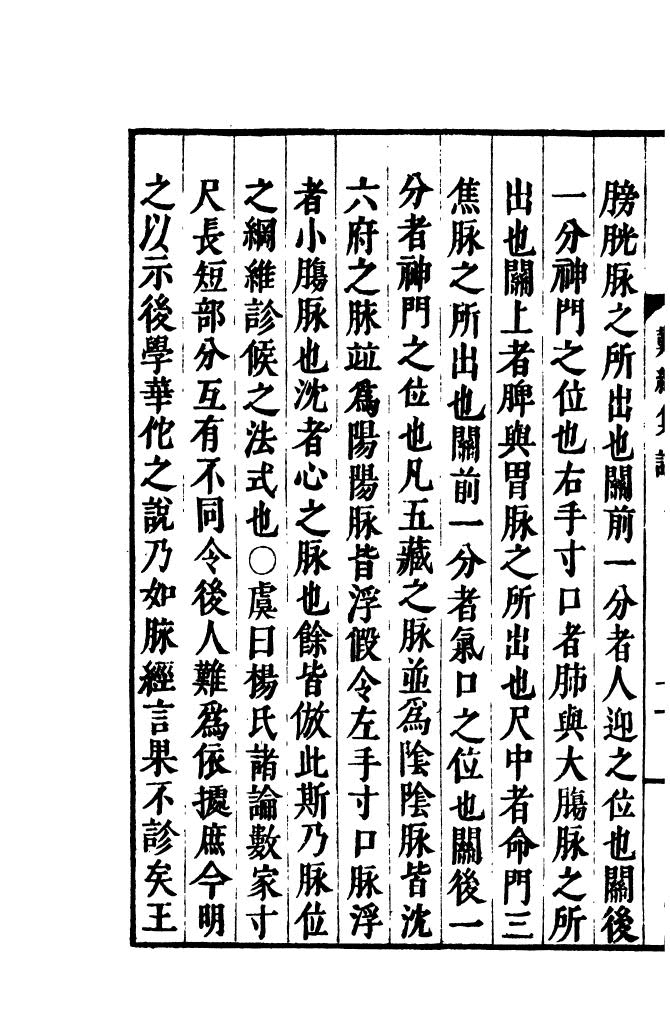 膀胱脉之所出也關前一分者人迎之位也關後
一分神門之位也右手寸口者肺與大膓脉之所
出也關上者脾與胃脉之所出也尺中者命門三
焦脉之所出也關前一分者氣口之位也關後一
分者神門之位也凡五藏之脉並爲陰陰脉皆沈
六府之脉並爲陽陽脉皆浮假令左手寸口脉浮
者小膓脉也沈者心之脉也餘皆倣此斯乃脉位
之綱維診候之法式也〇虞曰楊氏諸論數家寸
尺長短部分互有不同令後人難爲依據庶今明
之以示後學華佗之說乃如脉經言果不診矣王